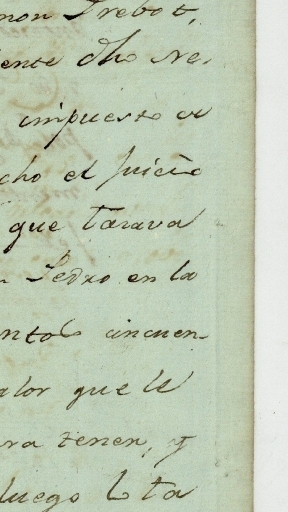 mon Trebot,
ente dho Ne,
impuesto al
cho el Juicio
que tasava
Pedro en la
ntos cincuen
alor que le
ra tener, y
luego